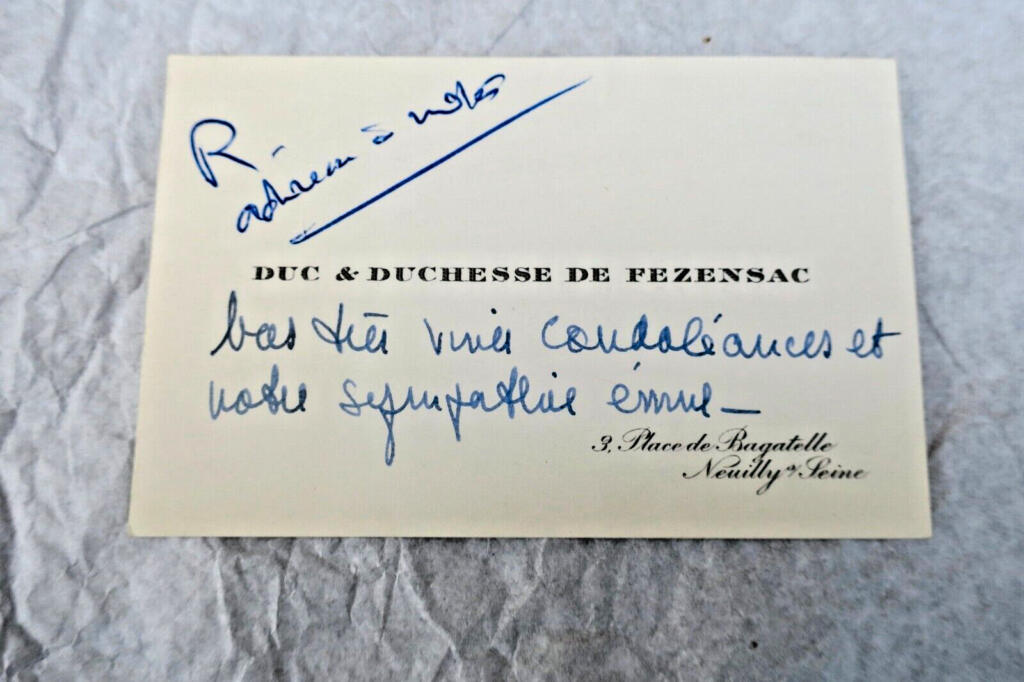 R
à noter
DUC & DUCHESSE DE FEZENSAC
très vives condoléances et
notre sympathie émue —
3, Place de Bagatelle
Neuilly s/ Seine